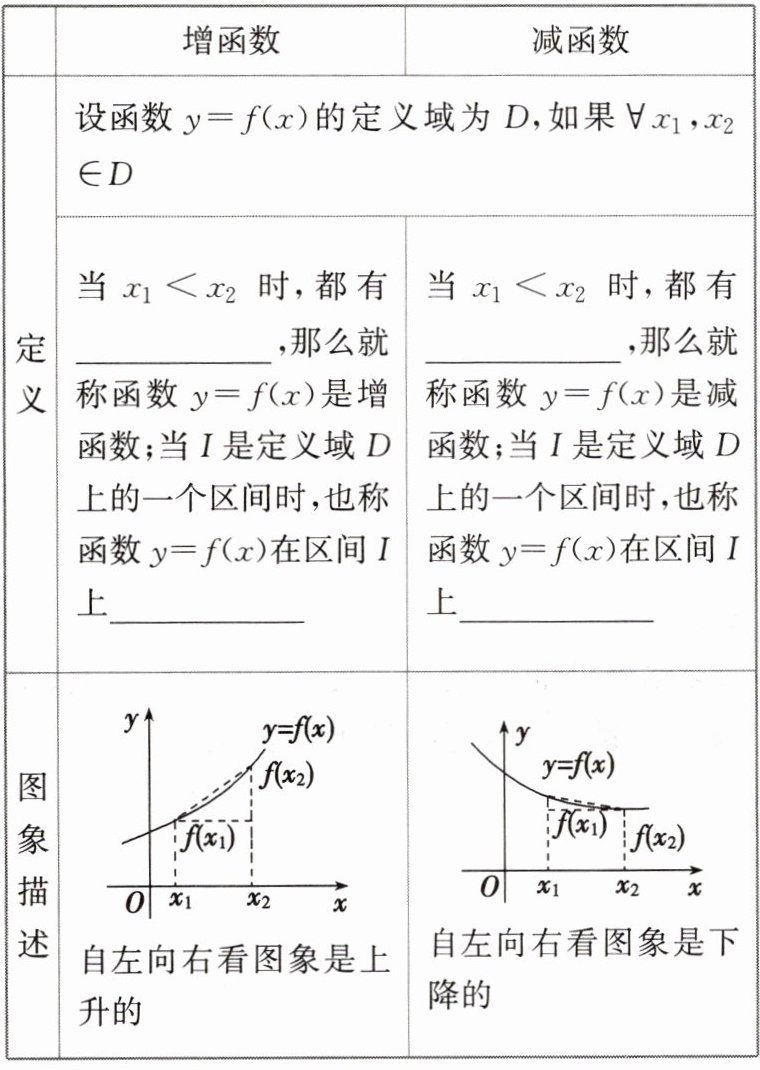 增函数 减函数
设函数 y=f(x)的定义域为 D,如果∀x₁,x₂
∈D
定义
当 x₁<x₂ 时,都有
________,那么就
称函数 y=f(x)是增
函数;当 I 是定义域 D
上的一个区间时,也称
函数 y=f(x)在区间 I
上________
当 x₁<x₂ 时,都有
________,那么就
称函数 y=f(x)是减
函数;当 I 是定义域 D
上的一个区间时,也称
函数 y=f(x)在区间 I
上________
图象描述
y
y=f(x)
f(x₂)
f(x₁)
O x₁ x₂ x
自左向右看图象是上
升的
y
y=f(x)
f(x₁) f(x₂)
O x₁ x₂ x
自左向右看图象是下
降的